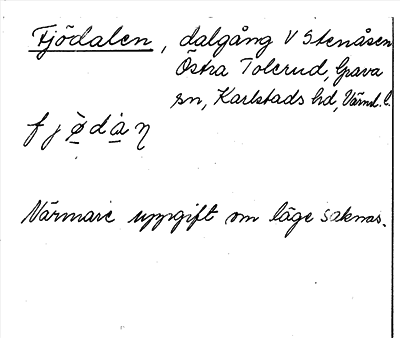 Fjödalen, dalgång V Stenåsen
Östra Tolerud, Grava
sn, Karlstads hd, Värml. l.
f j ø̱̀ d ȧ̱ ŋ
Närmare uppgift om läge saknas.